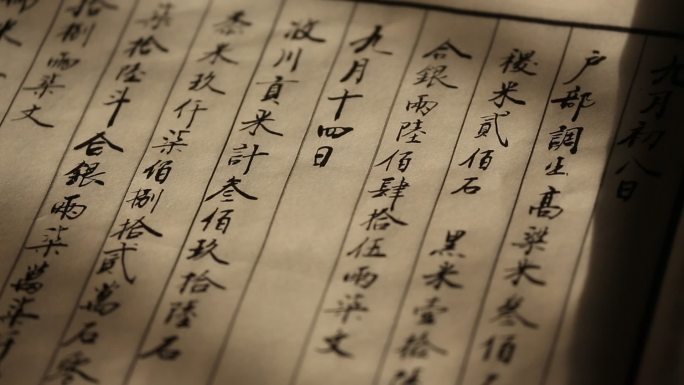 九月初八日
户部調出高粱米叁佰
稷米貳佰石 黑米壹拾陸
合銀兩陸佰肆拾伍兩柒文
九月十四日
汶川貢米計叁佰玖拾陸石
黍米玖仟柒佰捌拾貳萬石叁
柒拾陸斗 合銀兩柒萬柒仟
拾捌兩柒文